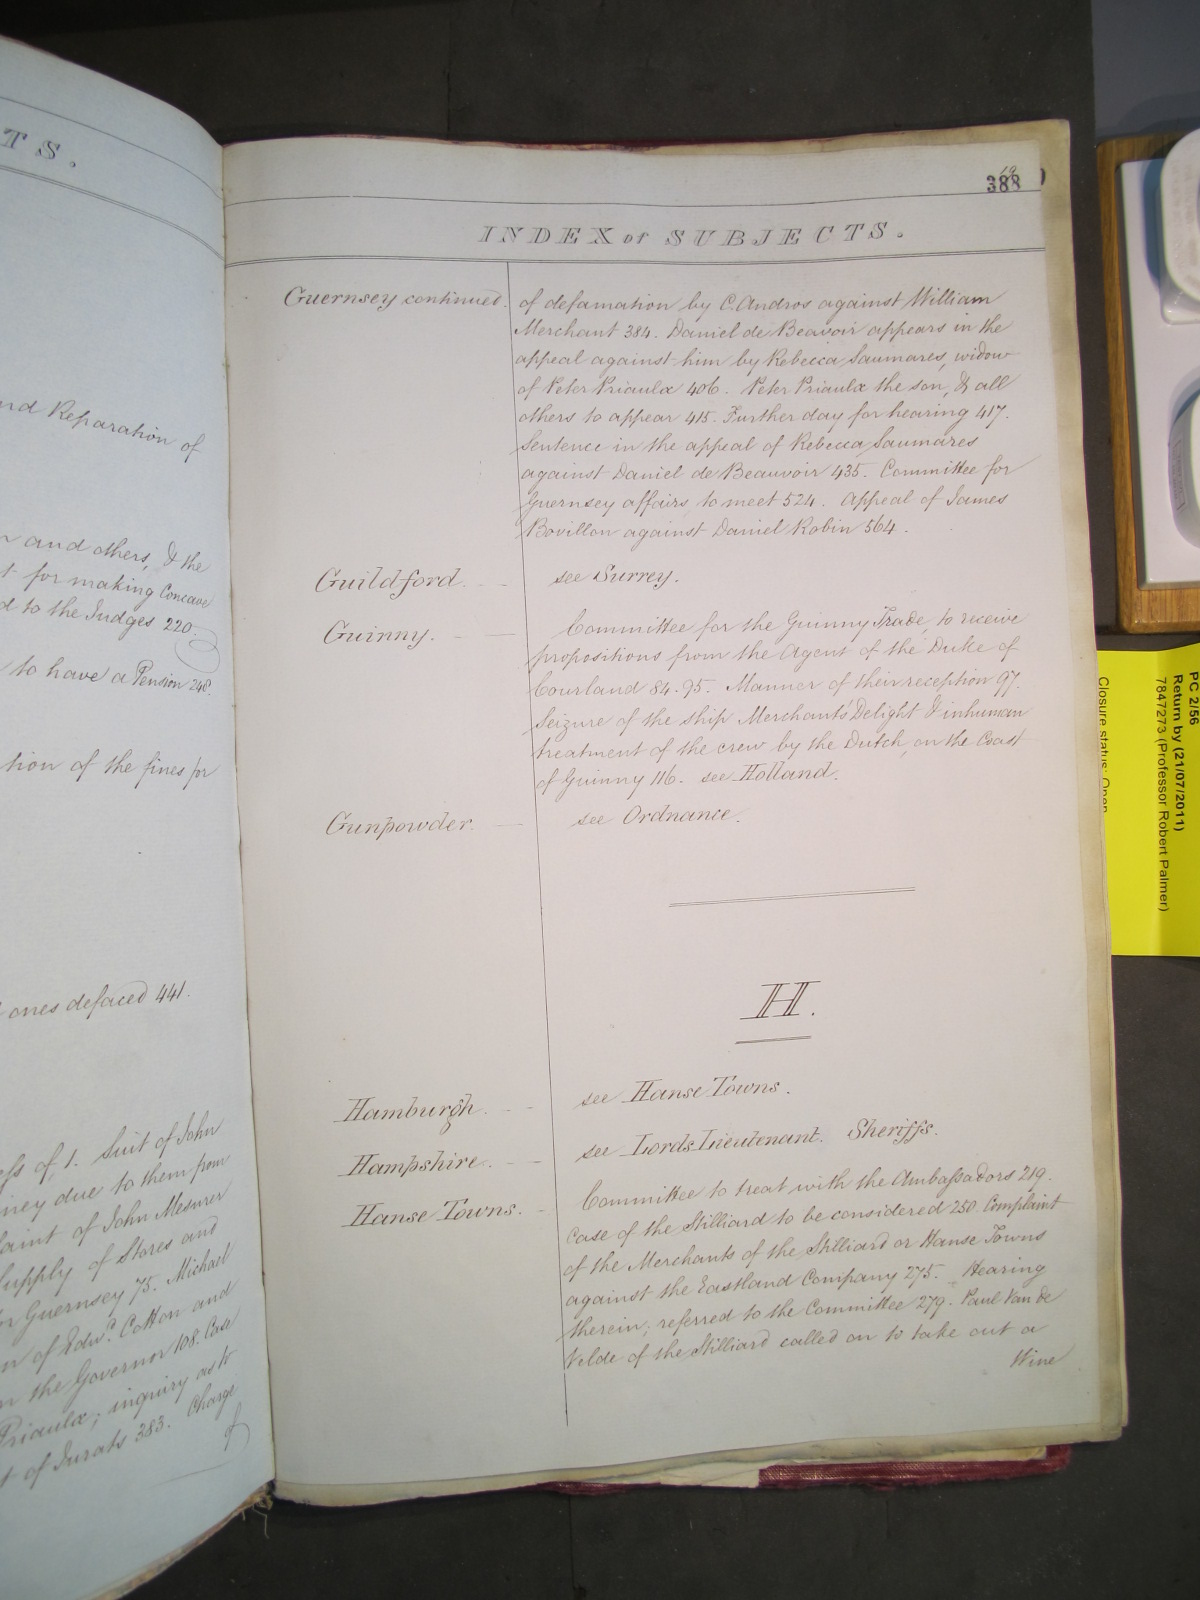 TS.
nd Reparation of
and others, & the
for making Concave
d to the Judges 220.
to have a Pension 248.
tion of the fines for
ones defaced 441.
of, 1. Suit of John
ney due to them from
aint of John Mesurer
Supply of Stores and
Guernsey 75. Michael
of Edwd. Cotton and
the Governor 108. Case
Priaulx; inquiry as to
of Jurats 383. Charge
of
388
INDEX of SUBJECTS.
Guernsey continued. of defamation by C. Andros against William
Merchant 384. Daniel de Beavoir appears in the
appeal against him by Rebecca Saumares, widow
of Peter Priaulx 406. Peter Priaulx the son, & all
others to appear 415. Further day for hearing 417.
Sentence in the appeal of Rebecca Saumares
against Daniel de Beauvoir 435. Committee for
Guernsey affairs, to meet 524. Appeal of James
Bovillon against Daniel Robin 564.
Guildford. see Surrey.
Guinny. Committee for the Guinny Trade, to receive
propositions from the Agent of the Duke of
Courland 84. 95. Manner of their reception 97.
Seizure of the ship Merchant's Delight & inhuman
treatment of the crew by the Dutch, on the Coast
of Guinny 116. see Holland.
Gunpowder. see Ordnance.
H.
Hamburgh. see Hanse Towns.
Hampshire. see Lords Lieutenant. Sheriffs.
Hanse Towns. Committee to treat with the Ambassadors 219.
Case of the Stilliard to be considered 250. Complaint
of the Merchants of the Stilliard or Hanse Towns
against the Eastland Company 275. Hearing
therein; referred to the Committee 279. Paul Van de
Velde of the Stilliard called on to take out a
Wine
PC 2/56
Return by (21/07/2011)
7847273 (Professor Robert Palmer)
Closure status: Open